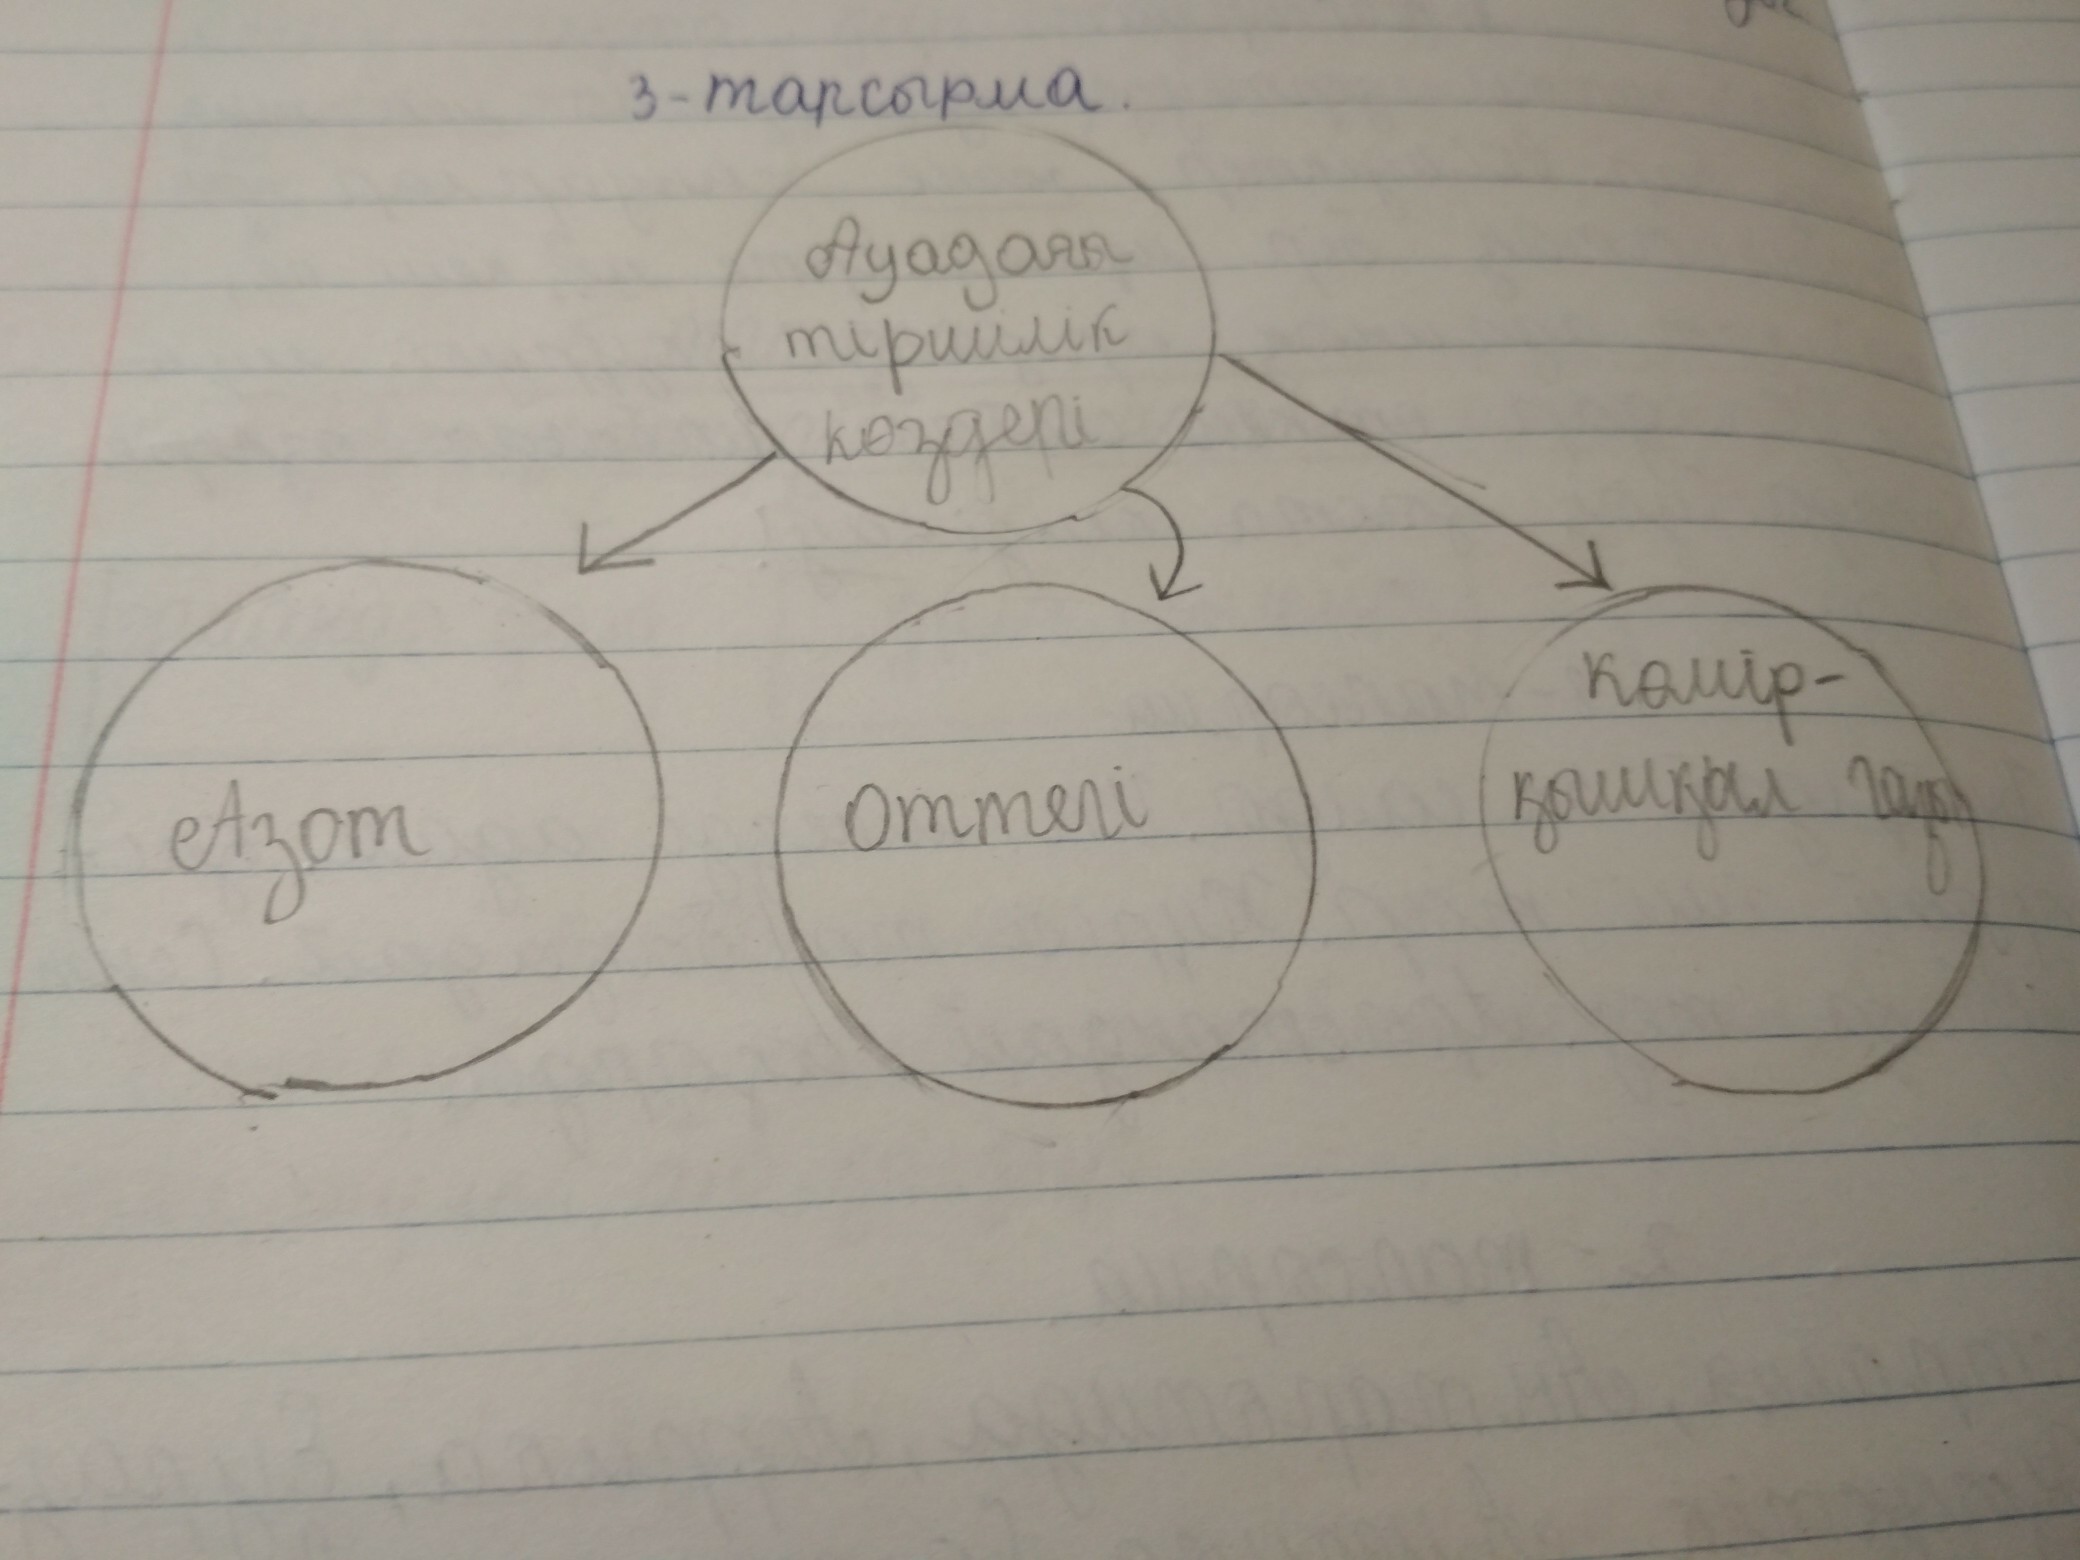 3-тарсырма.
Ауадағы
тіршілік
көздері
Азот
оттегі
көмір-
қышқыл газы